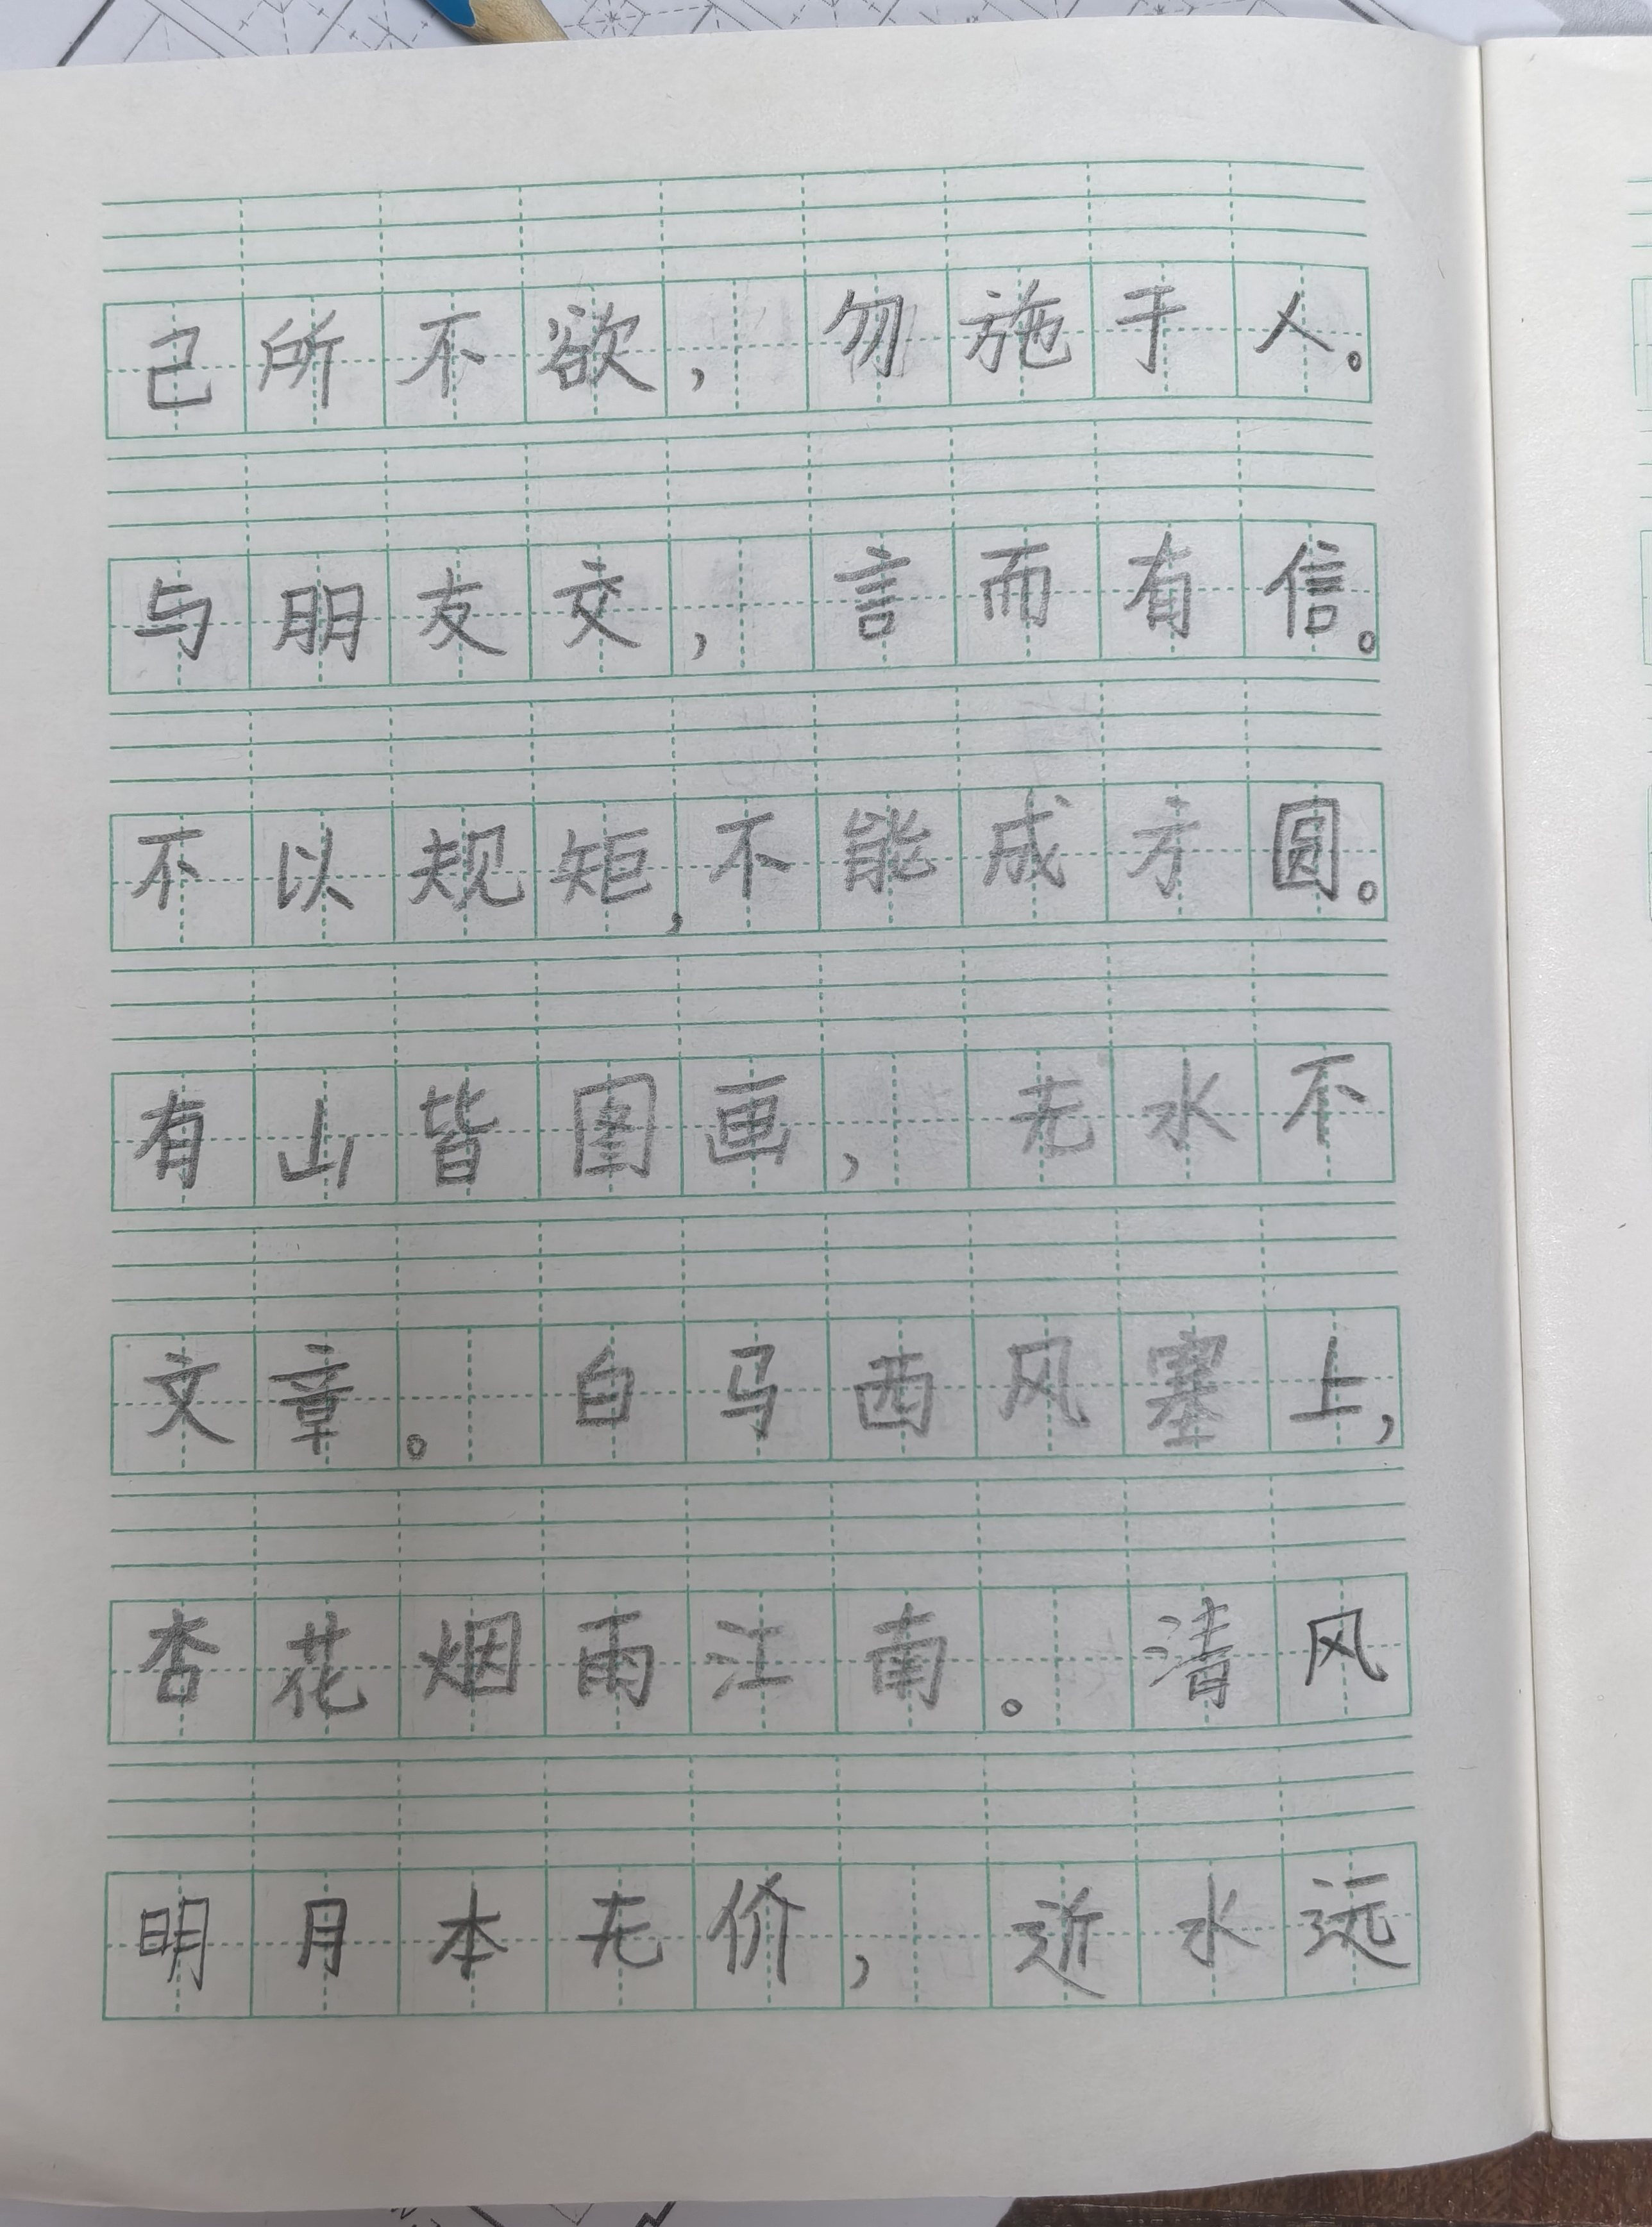 己所不欲，勿施于人。
与朋友交，言而有信。
不以规矩，不能成方圆。
有山皆图画，无水不
文章。白马西风塞上，
杏花烟雨江南。清风
明月本无价，近水远